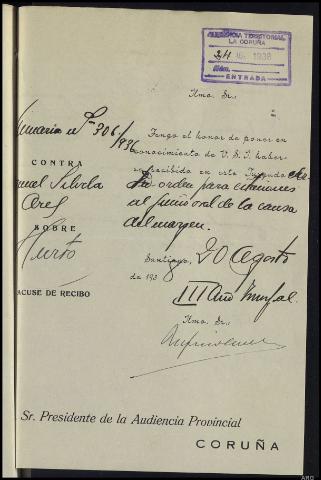 AUDIENCIA TERRITORIAL
LA CORUÑA
24
1938
Núm.
ENTRADA
Ilmo. Sr.:
306/936
CONTRA
Ares
SOBRE
Hurto
ACUSE DE RECIBO
Tengo el honor de poner en
conocimiento de V. S. I. haber-
se recibido en este Juzgado
orden para citaciones
al juicio oral de la causa
del margen.
Santiago, 20 Agosto
de 1938
III Año Triunfal.
Ilmo. Sr.:
Sr. Presidente de la Audiencia Provincial
CORUÑA